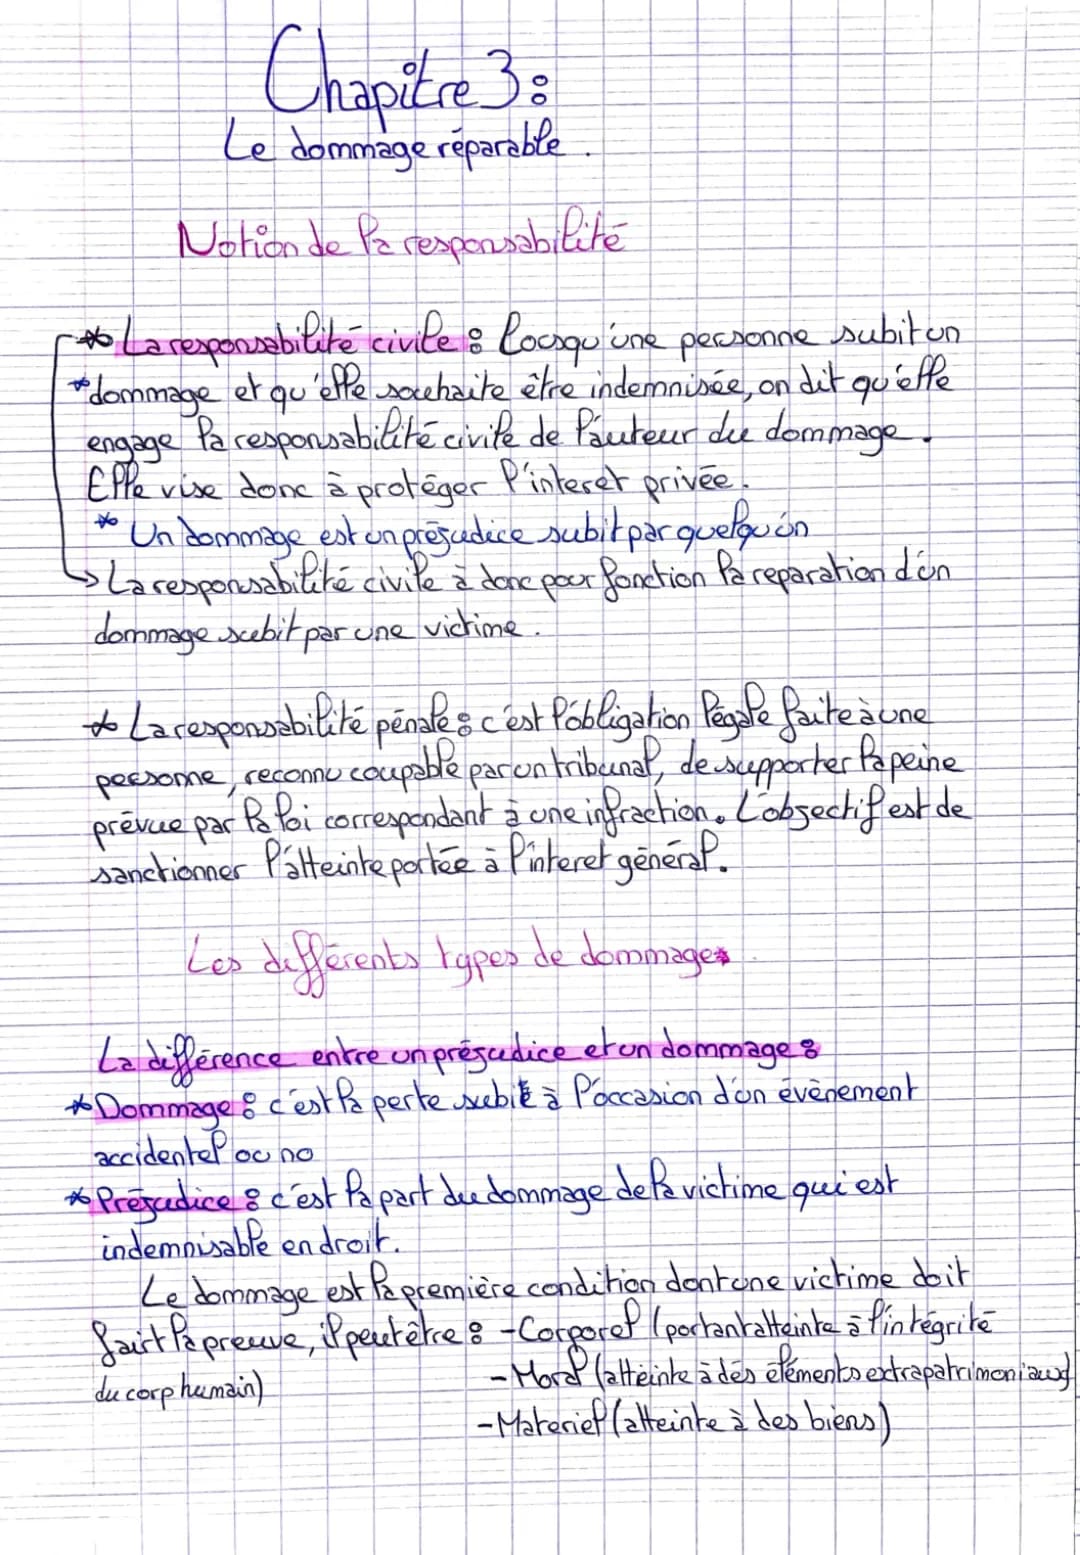 Chapître 3:
Le dommage réparable.
Notion de la responsabilité
* La responsabilité civile : lorsqu'une personne subit un
* dommage et qu'elle souhaite être indemnisée, on dit qu'elle
engage la responsabilité civile de l'auteur du dommage.
Elle vise donc à protéger l'interet privée.
* Un dommage est un préjudice subit par quelqu'un
→ La responsabilité civile à donc pour fonction la reparation d'un
dommage subit par une victime.
* La responsabilité pénale : c'est l'obligation légale faite à une
personne, reconnu coupable par un tribunal, de supporter la peine
prévue par la loi correspondant à une infraction. L'objectif est de
sanctionner l'atteinte portée à l'interet général.
Les différents types de dommages
La différence entre un préjudice et un dommage :
* Dommage : c'est la perte subit à l'occasion d'un évènement
accidentel ou no
* Préjudice : c'est la part du dommage de la victime qui est
indemnisable en droit.
Le dommage est la première condition dont une victime doit
fairt la preuve, il peut être : - Corporel (portant atteinte à l'intégrité
du corp humain)
- Moral (atteinte à des éléments extrapatrimoniaux)
- Materiel (atteinte à des biens)